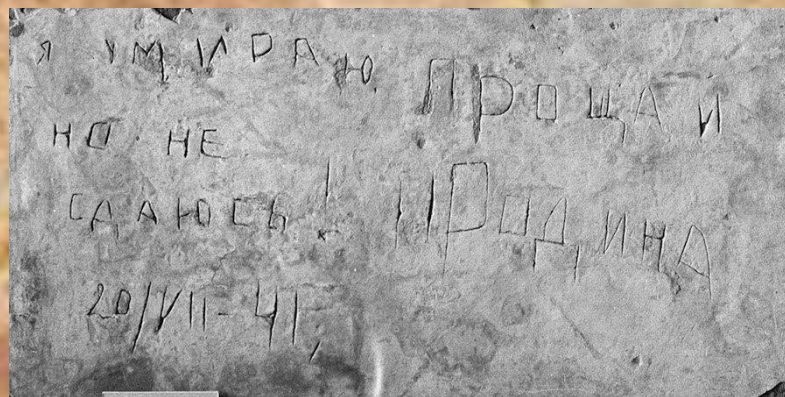 Я УМИРАЮ,
НО НЕ
СДАЮСЬ!
20/VII-41Г,
ПРОЩАЙ
РОДИНА